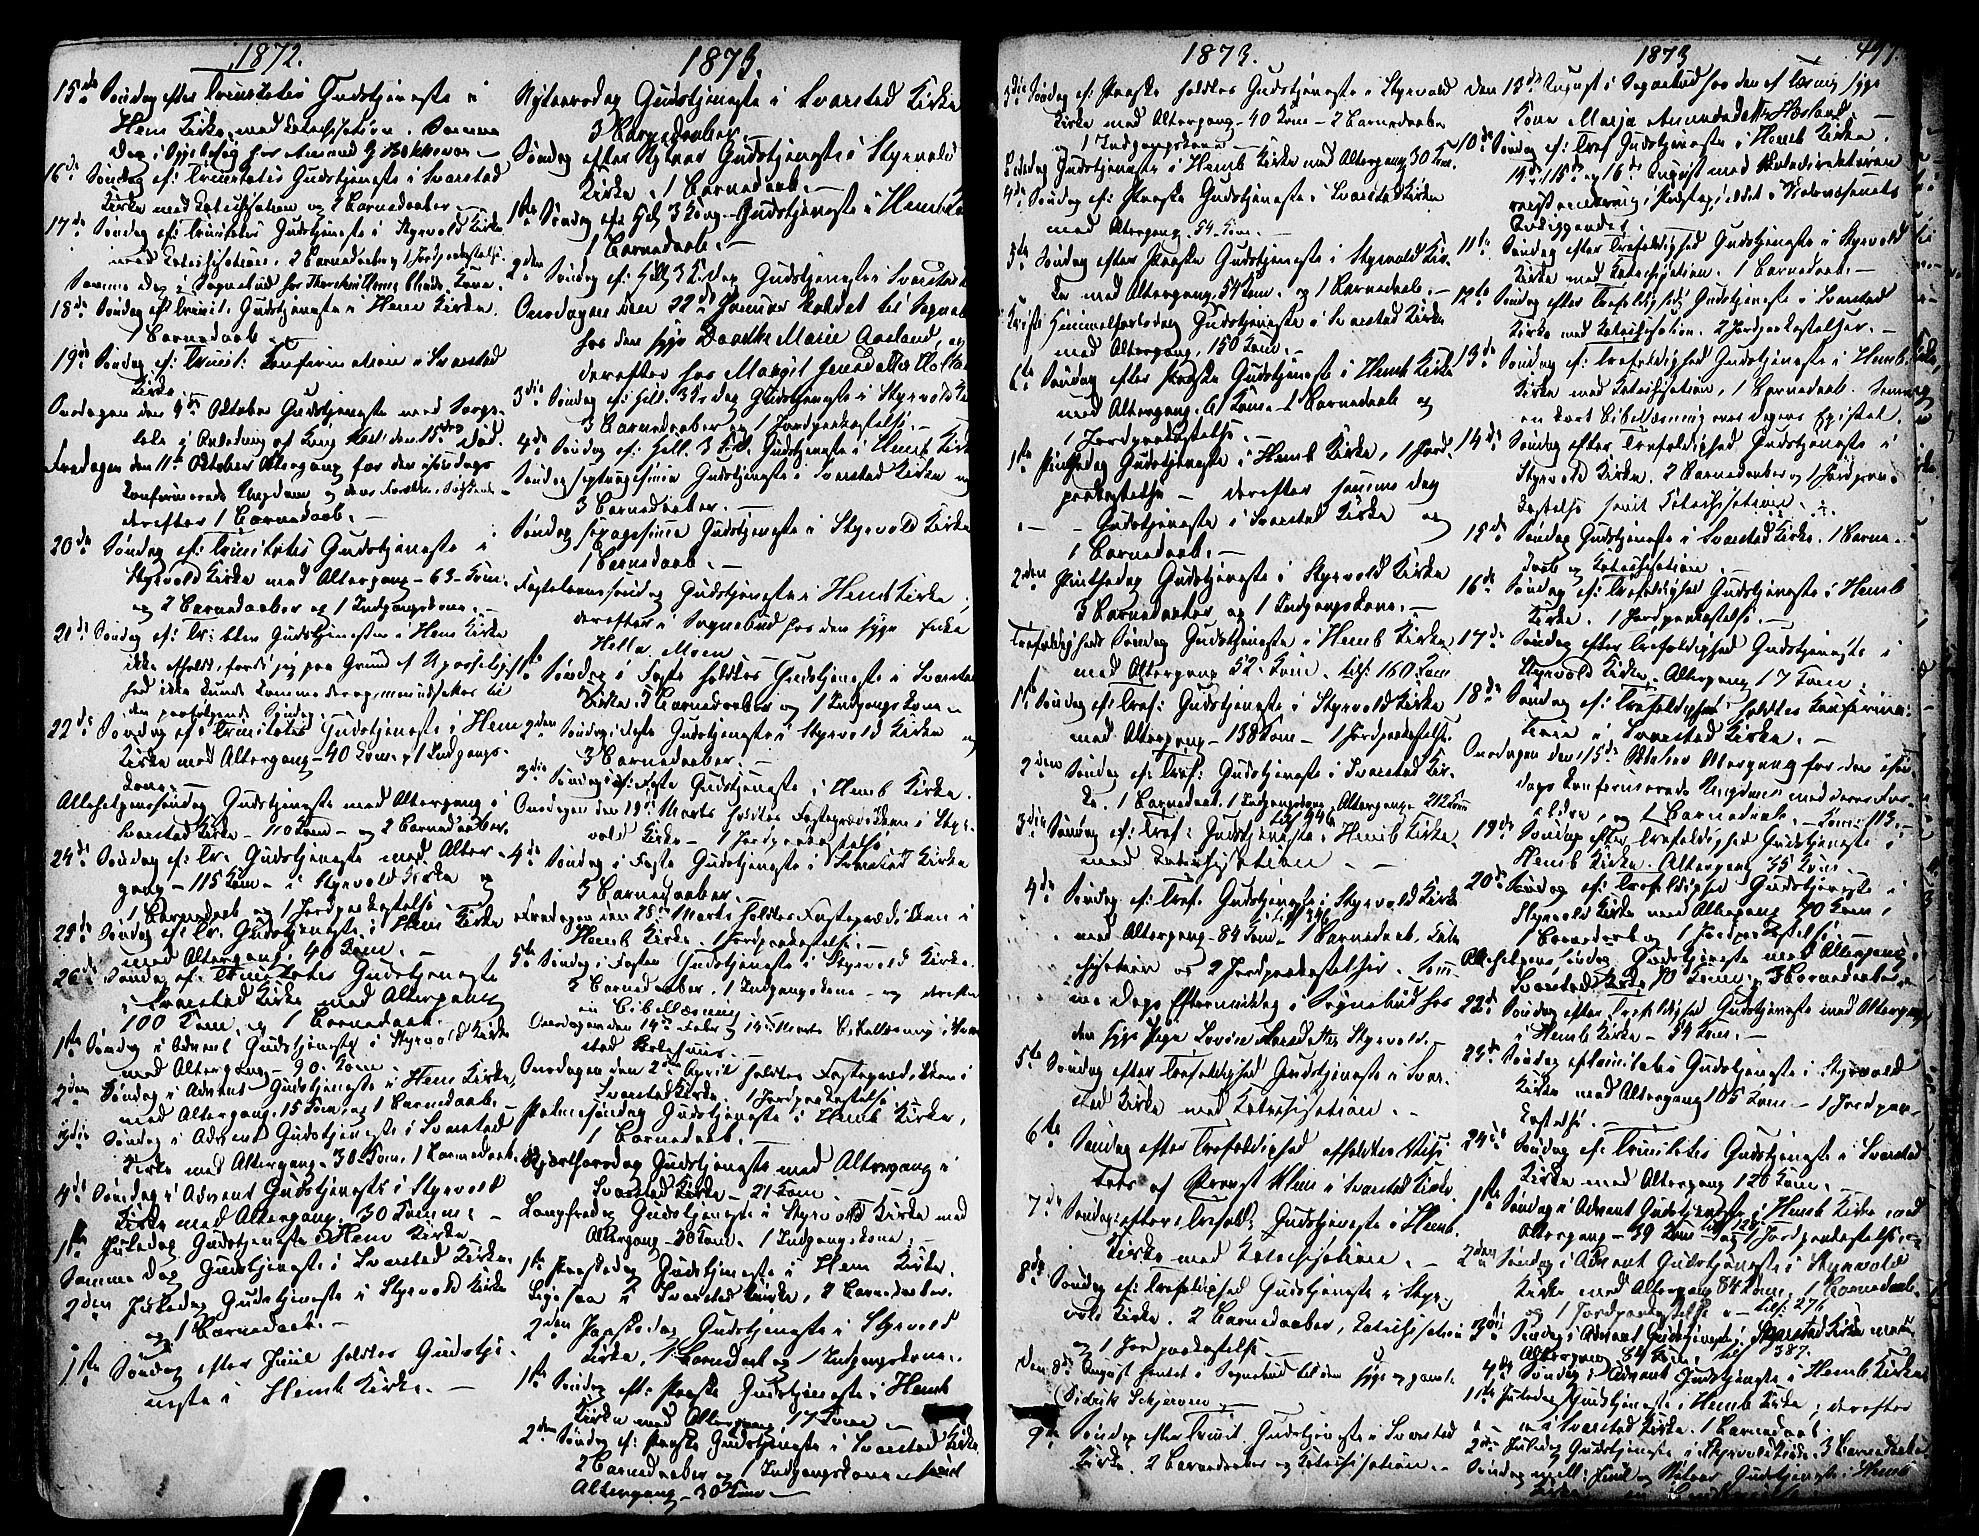 1872.
15de Søndag efter Trinitatis Gudstjeneste i
Hem Kirke, med Katechisation. Samme
Dag i Sygebesøg hos Amund
16de Søndag ef: Trinitatis Gudstjeneste i Svarstad
Kirke med Katechisation og 2 Barnedaaber. —
17de Søndag ef: Trinitatis Gudstjeneste i Styrvold Kirke
med Katechisation. 2 Barnedaaber og 1 Jordpaakastelse.
Samme Dag i Sognebud hos Kone.
18de Søndag ef: Trinit. Gudstjeneste i Hem Kirke.
1 Barnedaab. —
19de Søndag ef: Trinit: Konfirmation i Svarstad
Kirke. —
Onsdagen den 9de Oktober Gudstjeneste med Sørge-
tale i Anledning af Kong Karl den 15des Død.
Fredagen den 11te Oktober Altergang for den i Søndags
konfirmerede Ungdom og deres Forældre,
derefter 1 Barnedaab. —
20de Søndag ef: Trinitatis Gudstjeneste i
Styrvold Kirke med Altergang — 63 Kom.
og 2 Barnedaaber og 1 Indgangskone. —
21de Søndag ef: Tr: blev Gudstjenesten i Hem Kirke
ikke afholdt, fordi jeg paa Grund af Upasselig-
hed ikke kunde komme derop, men udsattes til
den paafølgende Søndag.
22de Søndag ef: Trinitatis Gudstjeneste i Hem
Kirke med Altergang — 40 Kom. 1 Indgangs-
kone. —
Allehelgenssøndag Gudstjeneste med Altergang i
Svarstad Kirke — 110 Kom — og 2 Barnedaaber.
24de Søndag ef: Tr. Gudstjeneste med Alter-
gang — 115 Kom — i Styrvold Kirke og
1 Barnedaab og 1 Jordpaakastelse. —
25de Søndag ef: Tr. Gudstjeneste i Hem Kirke
med Altergang, 40 Kom. —
26de Søndag ef. Trinitatis Gudstjeneste
i Svarstad Kirke med Altergang
100 Kom. og 1 Barnedaab. —
1ste Søndag i Advent Gudstjeneste i Styrvold Kirke
med Altergang — 90 Kom. —
2den Søndag i Advent Gudstjeneste i Hem Kirke,
med Altergang, 15 Kom, og 1 Barnedaab. —
3die Søndag i Advent Gudstjeneste i Svarstad
Kirke med Altergang — 30 Kom, 1 Barnedaab. —
4de Søndag i Advent Gudstjeneste i Styrvold
Kirke med Altergang. 30 Komm: —
1ste Juledag Gudstjeneste i Hem Kirke
Samme Dag Gudstjeneste i Svarstad Kirke.
2den Juledag Gudstjeneste i Styrvold Kirke
og 1 Barnedaab. —
1ste Søndag efter Juul holdtes Gudstje-
neste i Hemb Kirke. —
1873.
Nytaarsdag Gudstjeneste i Svarstad Kirke
3 Barnedaaber. —
Søndag efter Nytaar Gudstjeneste i Styrvold
Kirke. 1 Barnedaab. —
1ste Søndag ef: Hel. 3 Kong. Gudstjeneste i Hemb
1 Barnedaab. —
2den Søndag ef: Hell. 3 K. dag Gudstjeneste i Svarstad
Onsdagen den 22de Januar kaldet til Sogneb
hos den syge Dorthe Marie Aasland, og
derefter hos Margit Jensdatter
3die Søndag ef: Hell. 3 K. dag Gudstjeneste i Styrvold
3 Barnedaaber og 1 Jordpaakastelse. —
4de Søndag ef: Hell. 3 K.d. Gudstjeneste i Hemb Kirk
Søndag septuagesima Gudstjeneste i Svarstad Kirke og
3 Barnedaaber. —
Søndag sexagesima Gudstjeneste i Styrvold Kirke
1 Barnedaab. —
Fastelavnssøndag Gudstjeneste i Hemb Kirke,
derefter i Sognebud hos den syge Enke
Hella Moen. —
1ste Søndag i Faste holdtes Gudstjeneste i Svarstad
Kirke. 3 Barnedaaber og 1 Indgangskone —
2den Søndag i Faste Gudstjeneste i Styrvold Kirke og
3 Barnedaaber. —
3die Søndag i Faste Gudstjeneste i Hemb Kirke.
Onsdagen den 19de Marts holdtes Fasteprædiken i Styr-
vold Kirke — 1 Jordpaakastelse
4de Søndag i Faste Gudstjeneste i Svarstad Kirke
3 Barnedaaber. —
Fredagen den 28de Marts holdtes Fasteprædiken i
Hemb Kirke. 1 Jordpaakastelse. —
5te Søndag i Fasten Gudstjeneste i Styrvold Kirke.
3 Barnedaaber. 1 Indgangskone — og derefter
en Bibellæsning
Onsdagen den 14de Febr og Marts Bibellæsning i Svar
stad Skolehuus. —
Onsdagen den 2den April holdtes Fasteprædiken i
Svarstad Kirke. 1 Jordpaakastelse
Palmesøndag Gudstjeneste i Hemb Kirke,
1 Barnedaab. —
Skjærthorsdag Gudstjeneste med Altergang i
Svarstad Kirke — 21 Kom.
Langfredag Gudstjeneste i Styrvold Kirke med
Altergang — 30 Kom. 1 Indgangskone. —
1ste Paaskedag Gudstjeneste i Hem Kirke.
Ligesaa i Svarstad Kirke, 2 Barnedaaber.
2den Paaskedag Gudstjeneste i Styrvold
Kirke, 1 Barnedaab og 1 Indgangskone.
1ste Søndag eft: Paaske Gudstjeneste i Hemb
Kirke med Altergang 17 Kom —
2den Søndag ef: Paaske Gudstjeneste i Svarstad Kirke
2 Barnedaaber og 1 Indgangskone med
Altergang — 30 Kom —
1873.
3die Søndag ef. Paaske holdtes Gudstjeneste i Styrvold
Kirke med Altergang — 40 Kom — 2 Barnedaaber
og 1 Indgangskone —
Bededag Gudstjeneste i Hemb Kirke med Altergang 30 Kom.
4de Søndag ef: Paaske Gudstjeneste i Svarstad Kirke
med Altergang. 54 Kom. —
5te Søndag efter Paaske Gudstjeneste i Styrvold Kir-
ke med Altergang. 54 Kom. og 1 Barnedaab. —
Christi Himmelfartsdag Gudstjeneste i Svarstad Kirke
med Altergang, 150 Kom. —
6te Søndag efter Paaske Gudstjeneste i Hemb Kirke
med Altergang. Kom — 1 Barnedaab og
1 Jordpaakastelse. —
1ste Pintsedag Gudstjeneste i Hemb Kirke, 1 Jord-
paakastelse — derefter samme Dag
Gudstjeneste i Svarstad Kirke og
1 Barnedaab. —
2den Pintsedag Gudstjeneste i Styrvold Kirke
3 Barnedaaber og 1 Indgangskone. —
Trefoldigheds Søndag Gudstjeneste i Hemb Kirke
med Altergang 52 Kom. tils: 160 Kom
1ste Søndag ef: Tref: Gudstjeneste i Styrvold Kirke
med Altergang — 138 Kom — 1 Jordpaakastelse.
2den Søndag ef: Tref: Gudstjeneste i Svarstad Kir-
ke. 1 Barnedaab. 1 Indgangskone, Altergang 212 Kom
3die Søndag ef: Tref: Gudstjeneste i Hemb Kirke
med Katechisation —
4de Søndag ef: Tref. Gudstjeneste i Styrvold Kirke
med Altergang — 84 Kom — 1 Barnedaab. Kate-
chisation og 2 Jordpaakastelser. Sam-
me Dags Eftermiddag i Sognebud hos
den syge Pige Lovise Larsdatter Styrvold. —
5te Søndag efter Trefoldighed Gudstjeneste i Svar-
stad Kirke med Katechisation. —
6te Søndag efter Trefoldighed afholdtes Visi-
tats af Provst i Svarstad Kirke.
7de Søndag efter Trefold: Gudstjeneste i Hemb
Kirke med Katechisation. —
8de Søndag ef: Trefoldighed Gudstjeneste i Styr-
vold Kirke. 2 Barnedaaber, Katechisation
og 1 Jordpaakastelse. —
Den 8de August hentet i Sognebud til den syge og gamle
Didrik Schjerven —
9de Søndag efter Trinit. Gudstjeneste i Svarstad
Kirke. 2 Barnedaaber og Katechisation. —
1873 497.
Den 13de August i Sognebud hos den syge
Kone Maria Amundsdatter
10de Søndag ef: Tref Gudstjeneste i Hemb Kirke.
14de, 15de og 16de August med Skoledirektøren
11te Søndag efter Trefoldighed Gudstjeneste i Styrvold
Kirke med Katechisation. 1 Barnedaab. —
12te Søndag efter Trefoldighed Gudstjeneste i Svarstad
Kirke med Katechisation. 2 Jordpaakastelser. —
13de Søndag ef: Trefoldighed Gudstjeneste i Hemb
Kirke med Katechisation, 1 Barnedaab. Samt
en kort Bibellæsning over Dagens Epistel.
14de Søndag efter Trefoldighed Gudstjeneste i
Styrvold Kirke. 2 Barnedaaber og 1 Jordpaa-
kastelse samt Katechisation. —
15de Søndag Gudstjeneste i Svarstad Kirke. 1 Barne-
daab og Katechisation. —
16de Søndag ef: Trefoldighed Gudstjeneste i Hemb
Kirke. 1 Jordpaakastelse. —
17de Søndag efter Trefoldighed Gudstjeneste i
Styrvold Kirke. Altergang 17 Kom.
18de Søndag ef: Trefoldighed holdtes Konfirma-
tion i Svarstad Kirke. —
Onsdagen den 15de Oktober Altergang for den i Søn-
dags konfirmerede Ungdom med deres For-
ældre, og 1 Barnedaab. — Kom: 113. —
19de Søndag efter Trefoldighed Gudstjeneste i
Hemb Kirke. Altergang 35 Kom. —
20de Søndag ef: Trefoldighed Gudstjeneste i
Styrvold Kirke med Altergang 70 Kom,
1 Barnedaab og 1 Jordpaakastelse.
Allehelgens Søndag Gudstjeneste med Altergang
Svarstad Kirke 70 Kom, 3 Barnedaaber.
22de Søndag efter Trefoldighed Gudstjeneste med Altergang
i Hemb Kirke — 54 Kom. —
23de Søndag ef. Trinitatis Gudstjeneste i Styrvold
Kirke med Altergang 105 Kom — 1 Jordpaa-
kastelse.
24de Søndag ef: Trinitatis Gudstjeneste i Svarstad
Kirke med Altergang 120 Kom. —
1ste Søndag i Advent Gudstjeneste i Hemb Kirke med
Altergang — 39 Kom og 1 Jordpaakastelse.
2den Søndag i Advent Gudstjeneste i Styrvold
Kirke med Altergang 84 Kom, 1 Barnedaab
og 1 Jordpaakastelse. — tils: 276
3die Søndag i Advent Gudstjeneste i Svarstad Kirke med
Altergang 84 Kom, tils 387.
4de Søndag i Advent Gudstjeneste i Hemb Kirke
1ste Juledag Gudstjeneste i Hemb Kirke, derefter
i Svarstad Kirke. 1 Barnedaab.
2den Juledag Gudstjeneste i Styrvold Kirke. 3 Barnedaab
Søndag mell: Juul og Nytaar Gudstjeneste i Hemb